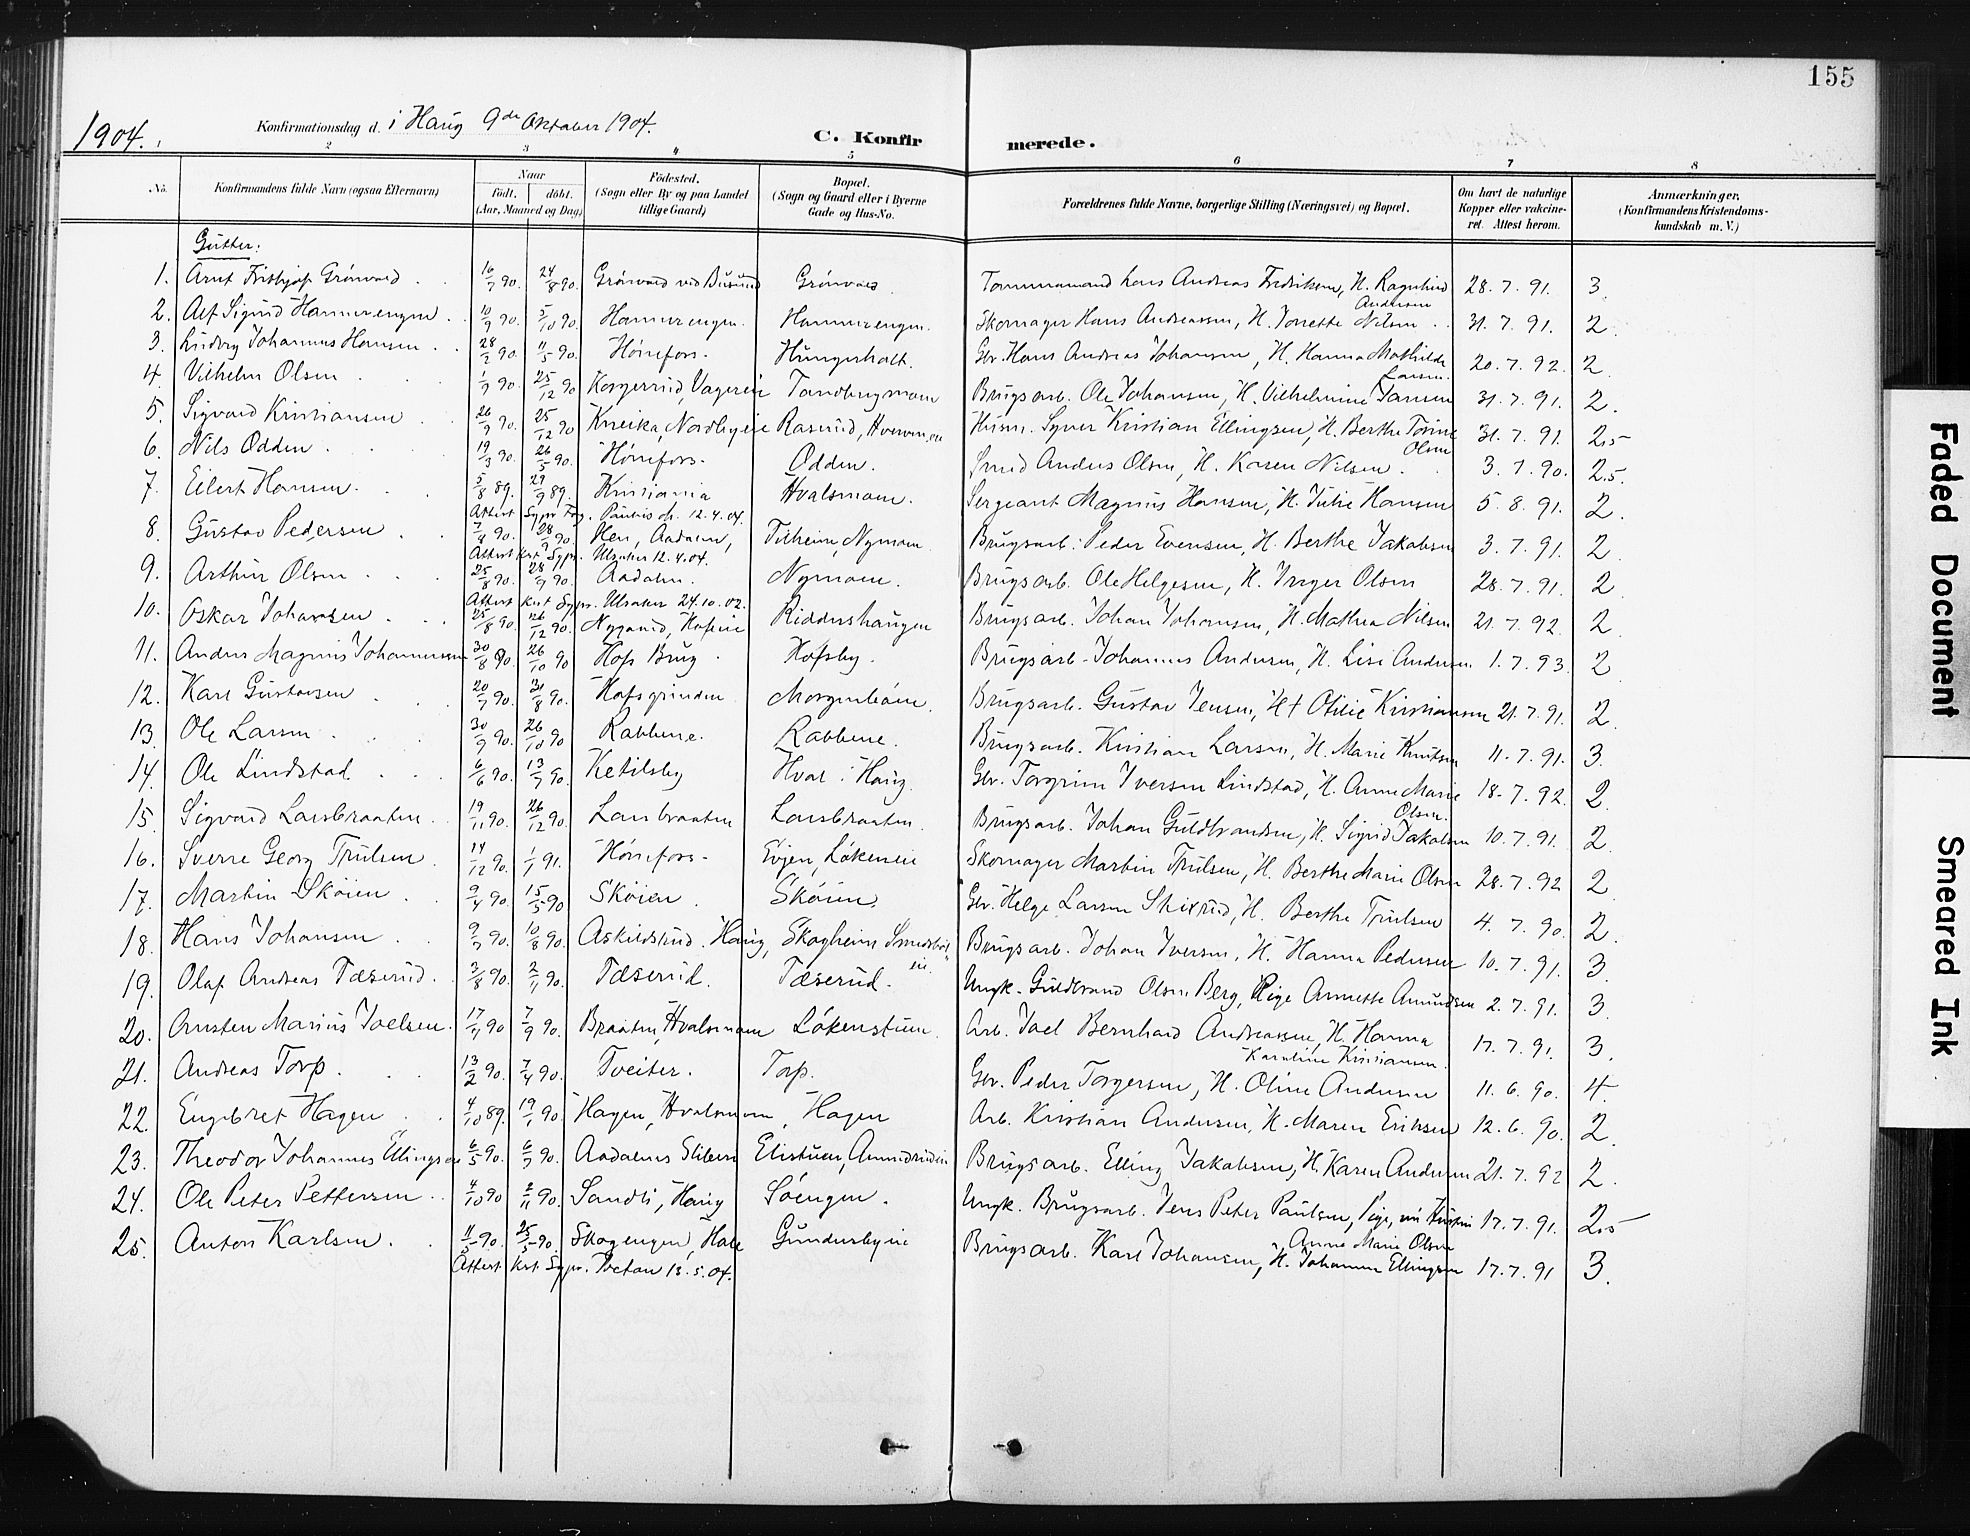 155
1904.
Konfirmationsdag d. i Haug 9de Oktober 1904.
C. Konfir merede.
2 3 4 5 6 7 8
No. Konfirmandens fulde Navn (ogsaa Efternavn) Naar født. døbt. (Aar, Maaned og Dag) Fødested. (Sogn eller By og paa Landet tillige Gaard) Bopæl. (Sogn og Gaard eller i Byerne Gade og Hus-No. Forældrenes fulde Navne, borgerlige Stilling (Næringsvei) og Bopæl. Om havt de naturlige Kopper eller vakcineret. Attest herom. Anmærkninger. (Konfirmandens Kristendomskundskab m. V.)
Gutter:
1. Arnt Frithjof Grönvold 16/7 90. 24/8 90. Grönvold ved Busund Grönvold Tommermand Lars Andreas Fredriksen, H. Ragnhild Andersen 28.7.91. 3.
2. Alf Sigurd Hammerengen 10/9 90. 5/10 90. Hammerengen. Hammerengen. Skomager Hans Andreassen, H. Jonette Nilsen 31.7.91. 2.
3. Ludvig Johannes Hansen 28/2 90. 11/5 90. Hönefos. Hungerholt. Gbr. Hans Andreas Johansen, H. Hanna Mathilde Larsen. 20.7.92. 2.
4. Vilhelm Olsen 1/9 90. 25/12 90 Korgerud, Vagereie Tandbergmoen Brugsarb. Ole Johansen, H. Vilhelmine Jansen 31.7.91. 2.
5. Sigvard Kristiansen 26/9 90. 25/12 90 Kneika, Nordbyeie Raserud, Hvervenm. eie Husm. Syver Kristian Ellingsen, H. Berthe Torine Olsen 31.7.91. 2.5
6. Nils Odden 19/3 90. 26/5 90. Hönefos. Odden. Smed Anders Olsen, H. Karen Nilsen. 3.7.90. 2.5.
7. Eilert Hansen. 5/8 89. 29/9 89. Kristiania Hvalsmoen. Sergeant Magnus Hansen, H. Julie Hansen 5.8.91. 2.
Attest Sypr Frg. Paulus ch. 12.4.04.
8. Gustav Pedersen 7/4 90. 28/9 90. Hen, Aadalen, Tilheim, Nymoen Brugsarb: Peder Evensen, H. Berthe Jakobsen 3.7.91. 2.
Attest kst Sypr. Ulsaker 12.4.04.
9. Arthur Olsen 25/8 90. 28/9 90. Aadalen. Nymoen. Brugsarb. Ole Helgesen, H. Inger Olsen 28.7.91. 2
Attest kst Sypr. Ulsaker 24.10.02.
10. Oskar Johansen 25/8 90. 26/12 90. Nygaard, Hofeie Riddershaugen Brugsarb. Johan Johansen, H. Mathea Nilsen 21.7.92. 2
11. Anders Magnus Johannessen 30/8 90. 26/10 90 Hofs Brug Hofsby. Brugsarb. Johannes Andersen, H. Lise Andersen 1.7.93. 2
12. Karl Gustavsen 20/7 90. 31/8 90. Hofsgrinden Morgenbøien. Brugsarb. Gustav Jensen, H† Otilie Kristiansen 21.7.91. 2.
13. Ole Larsen 30/9 90. 26/10 90 Rabbene. Rabbene. Brugsarb. Kristian Larsen, H. Marie Knutsen 11.7.91. 3.
14. Ole Lindstad 6/6 90. 13/7 90. Ketilsby Hval i Haug. Gbr. Torgrim Iversen Lindstad, H. Anne Marie Olsen. 18.7.92. 2.
15. Sigvard Larsbraaten 19/11 90. 26/12 90. Larsbraaten Larsbraaten. Brugsarb. Johan Guldbrandsen, H. Sigrid Jakobsen 10.7.91. 2.
16. Sverre Georg Trulsen 14/12 90. 1/1 91. Hönefos. Evjen, Løkeneie Skomager Martin Trulsen, H. Berthe Marie Olsen 28.7.92 2
17. Martin Skøien 9/4 90. 15/5 90 Skøien. Skøien. Gbr. Helge Larsen Skixrud, H. Berthe Trulsen 4.7.90. 2.
18. Hans Johansen 9/7 90. 10/8 90. Askildsrud. Haug, Skogheim Smedsbøl eie. Brugsarb. Johan Iversen, H. Hanna Pedersen 10.7.91. 3.
19. Olaf Andreas Tæserud. 3/8 90. 2/11 90. Tæserud. Tæserud. Ungk. Guldbrand Olsen Berg, Pige Annette Amundsen 2.7.91. 3.
20. Arnsten Marius Joelsen. 17/7 90 7/9 90. Braaten, Hvalsmoen Løkenstuen. Arb. Joel Bernhard Andreassen, H. Hanna Karoline Kristiansen. 17.7.91. 3.
21. Andreas Torp. 13/2 90. 7/4 90. Tveiter. Torp. Gbr. Peder Torgersen, H. Oline Andersen 11.6.90. 4.
22. Engebret Hagen 4/10 89. 19/1 90. Hagen, Hvalsmoen, Hagen Arb. Kristian Andersen, H. Maren Eriksen 12.6.90. 2.
23. Theodor Johannes Ellingsen 6/5 90. 6/7 90. Aadalens Sliberi Elistuen, Amundrudeie Brugsarb. Elling Jakobsen, H. Karen Andersen 21.7.92 2.
24. Ole Peter Pettersen 4/10 90 2/11 90. Sandli, Haug Søengen. Ungk. Brugsarb. Jens Peter Paulsen, Pige, nu Hustru Anne Marie Olsen 17.7.91. 2.5
25. Anton Karlsen. 11/3 90. 25/5 90. Skogengen, Hole Gundersbyeie Brugsarb. Karl Johansen, H. Johanne Ellingsen 17.7.91 3.
Attest kst. Sypr. 13.5.04.
Faded Document
Smeared Ink